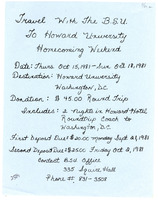 Travel With The B.S.U.
To Howard University
Homecoming Weekend
Date: Thurs Oct 15, 1981 - Sun Oct 18, 1981
Destination: Howard University
Washington, DC
Donation: $45.00 Round Trip
Includes: 2 nights in Howard Hotel
Roundtrip Coach to
Washington, DC.
First Deposit Due $20.00 Monday Sept 21, 1981
Second Deposit Due $25.00 Friday Oct 2, 1981
Contact: BSU Office
335 Squire Hall
Phone #